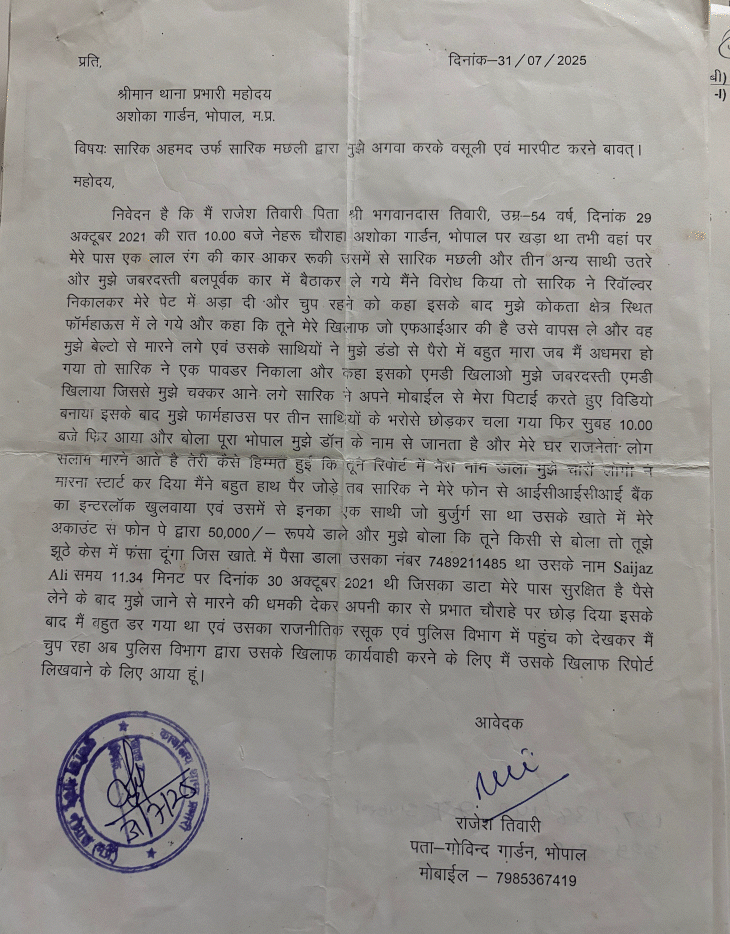 प्रति,
दिनांक–31/07/2025
श्रीमान थाना प्रभारी महोदय
अशोका गार्डन, भोपाल, म.प्र.
विषयः सारिक अहमद उर्फ सारिक मछली द्वारा मुझे अगवा करके वसूली एवं मारपीट करने बावत्।
महोदय,
निवेदन है कि मैं राजेश तिवारी पिता श्री भगवानदास तिवारी, उम्र–54 वर्ष, दिनांक 29
अक्टूबर 2021 की रात 10.00 बजे नेहरू चौराहा अशोका गार्डन, भोपाल पर खड़ा था तभी वहां पर
मेरे पास एक लाल रंग की कार आकर रूकी उसमें से सारिक मछली और तीन अन्य साथी उतरे
और मुझे जबरदस्ती बलपूर्वक कार में बैठाकर ले गये मैंने विरोध किया तो सारिक ने रिवॉल्वर
निकालकर मेरे पेट में अड़ा दी और चुप रहने को कहा इसके बाद मुझे कोकता क्षेत्र स्थित
फॉर्महाऊस में ले गये और कहा कि तूने मेरे खिलाफ जो एफआईआर की है उसे वापस ले और वह
मुझे बेल्टो से मारने लगे एवं उसके साथियों ने मुझे डंडो से पैरो में बहुत मारा जब मैं अधमरा हो
गया तो सारिक ने एक पावडर निकाला और कहा इसको एमडी खिलाओ मुझे जबरदस्ती एमडी
खिलाया जिससे मुझे चक्कर आने लगे सारिक ने अपने मोबाईल से मेरा पिटाई करते हुए विडियो
बनाया इसके बाद मुझे फार्महाउस पर तीन साथियों के भरोसे छोड़कर चला गया फिर सुबह 10.00
बजे फिर आया और बोला पूरा भोपाल मुझे डॉन के नाम से जानता है और मेरे घर राजनेता लोग
सलाम मारने आते है तेरी कैसे हिम्मत हुई कि तूने रिपोर्ट में मेरा नाम डाला मुझे चारो लोगो ने
मारना स्टार्ट कर दिया मैंने बहुत हाथ पैर जोड़े तब सारिक ने मेरे फोन से आईसीआईसीआई बैंक
का इन्टरलॉक खुलवाया एवं उसमें से इनका एक साथी जो बुर्जुग सा था उसके खाते में मेरे
अकाउंट से फोन पे द्वारा 50,000/– रूपये डाले और मुझे बोला कि तूने किसी से बोला तो तूझे
झूठे केस में फंसा दूंगा जिस खाते में पैसा डाला उसका नंबर 7489211485 था उसके नाम Saijaz
Ali समय 11.34 मिनट पर दिनांक 30 अक्टूबर 2021 थी जिसका डाटा मेरे पास सुरक्षित है पैसे
लेने के बाद मुझे जाने से मारने की धमकी देकर अपनी कार से प्रभात चौराहे पर छोड़ दिया इसके
बाद मैं बहुत डर गया था एवं उसका राजनीतिक रसूक एवं पुलिस विभाग में पहुंच को देखकर मैं
चुप रहा अब पुलिस विभाग द्वारा उसके खिलाफ कार्यवाही करने के लिए मैं उसके खिलाफ रिपोर्ट
लिखवाने के लिए आया हूं।
आवेदक
राजेश तिवारी
पता–गोविन्द गार्डन, भोपाल
मोबाईल – 7985367419
कार्यालय थाना प्रभारी
31/7/25